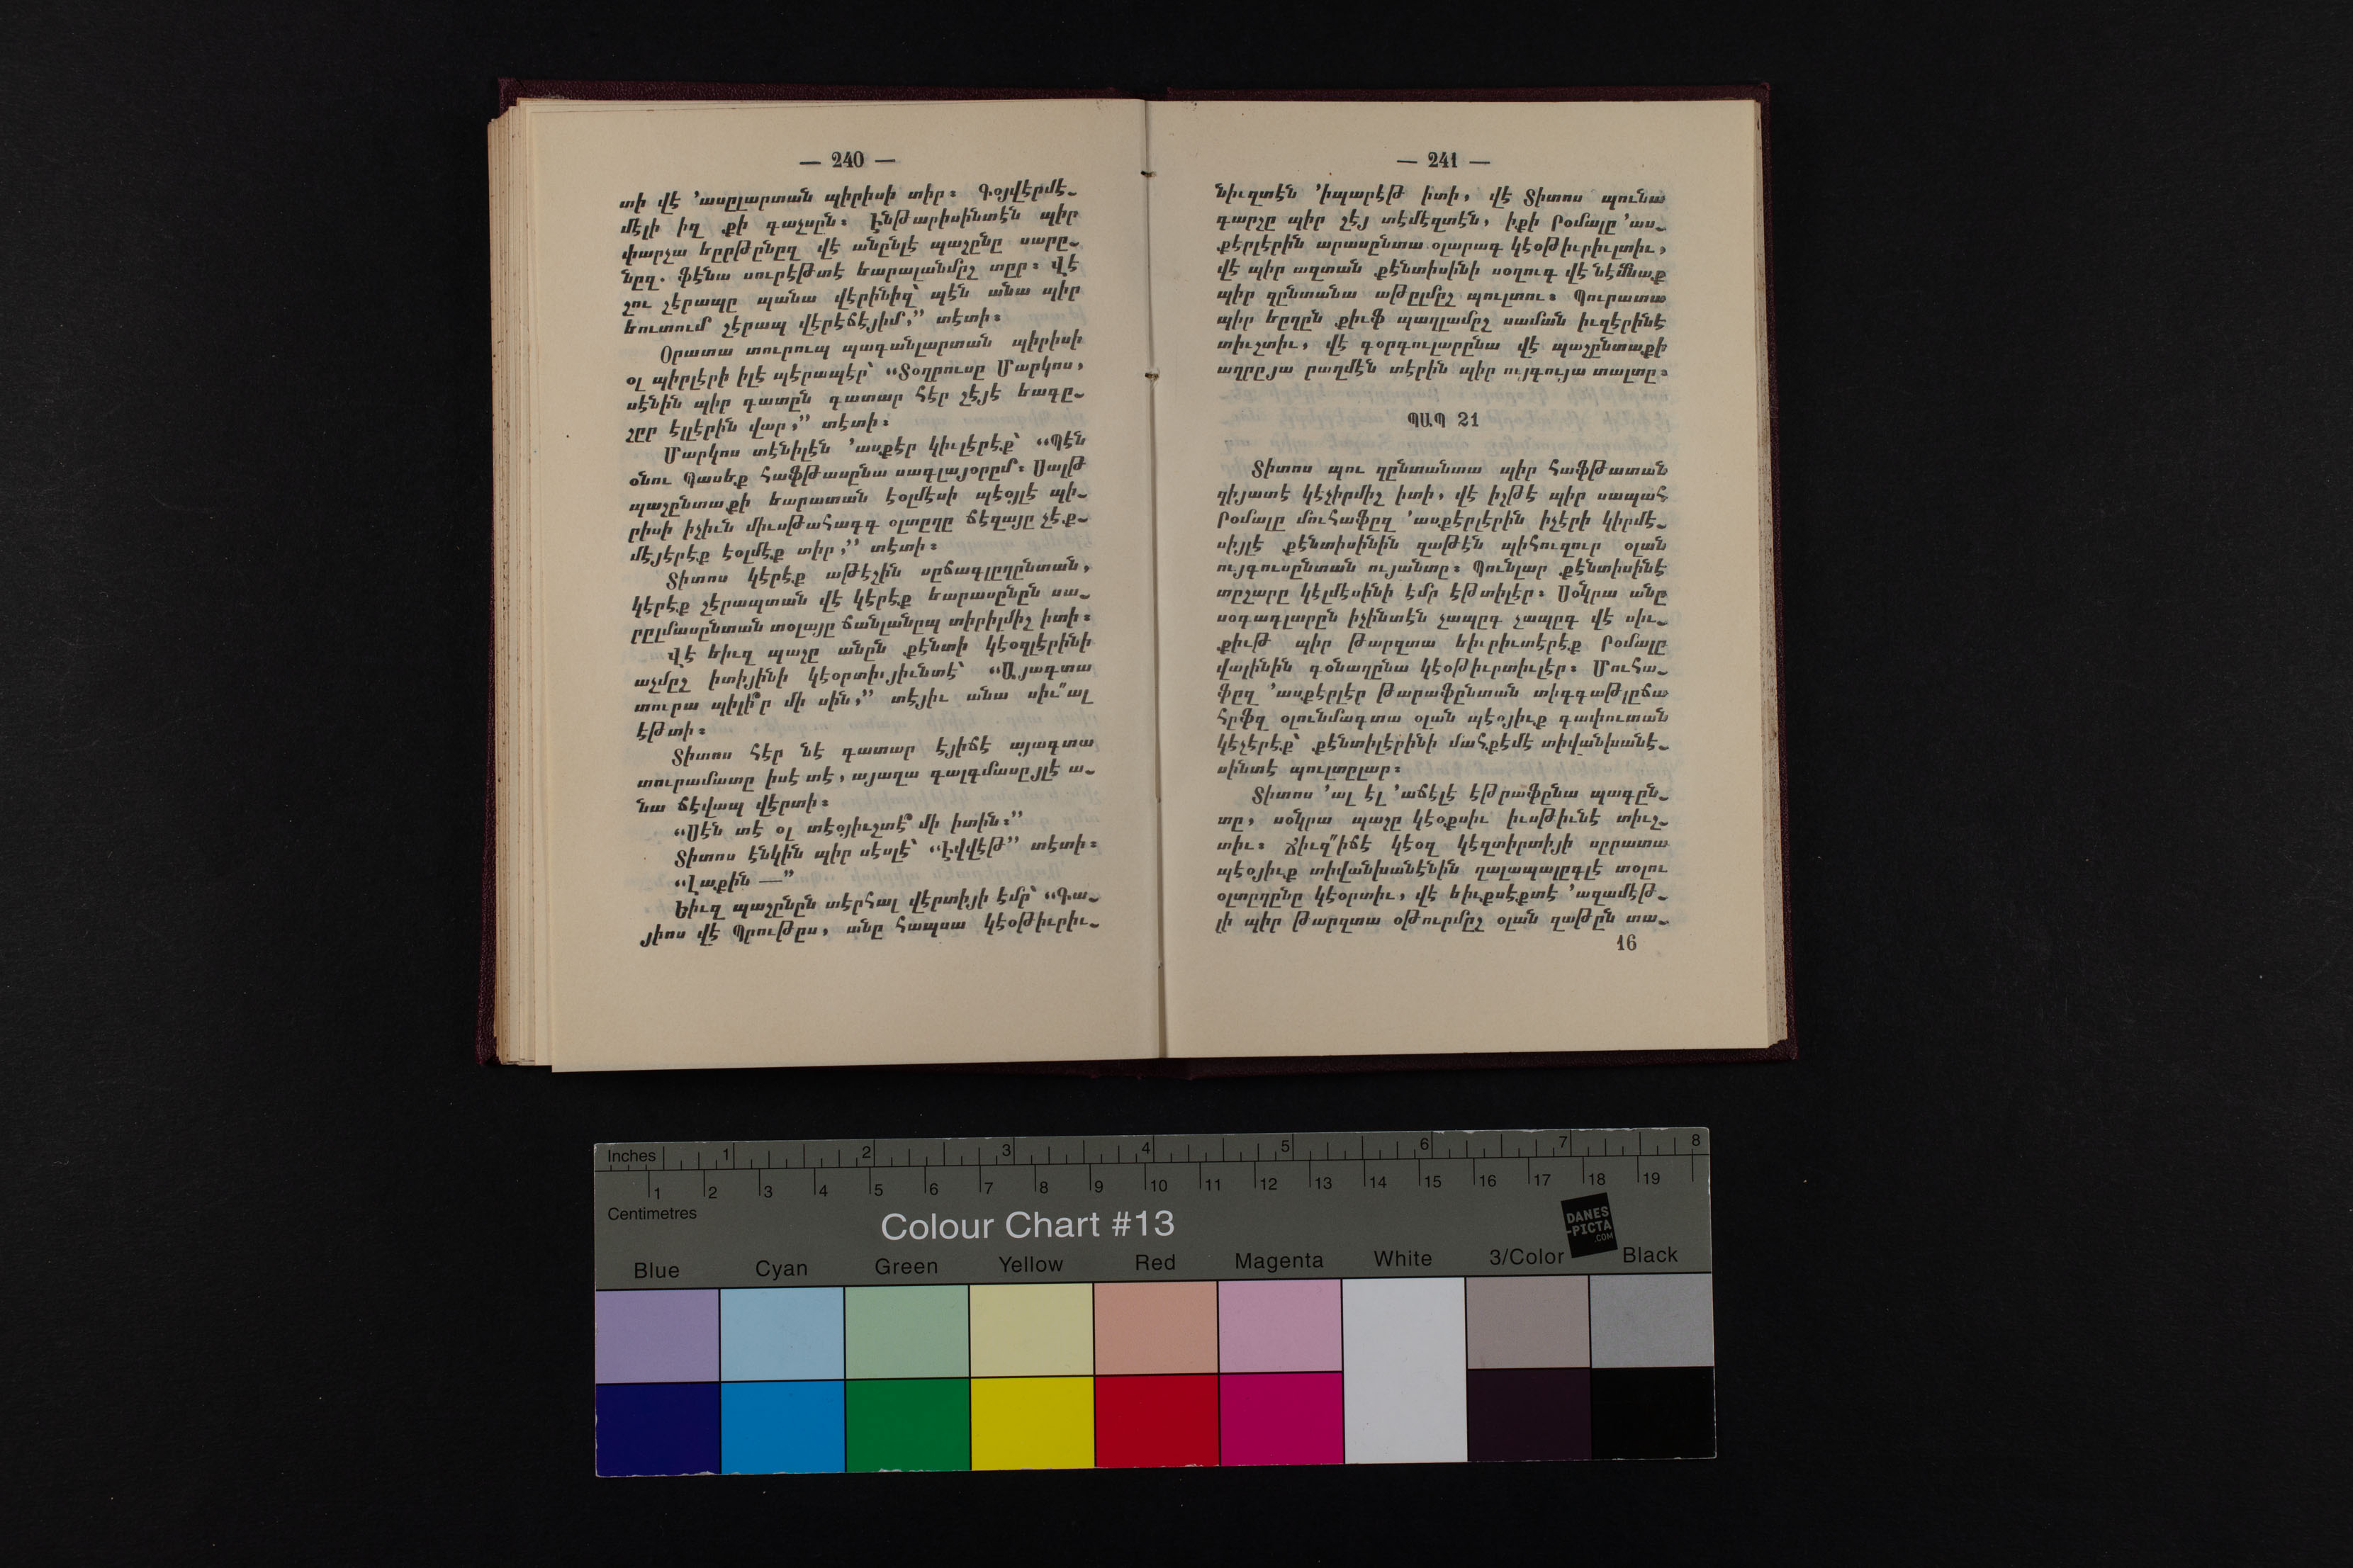 — 240 —
տի վէ ՚ասըլարտան պիրիսի տիր։ Գօյվէրմէ֊
մէլի իզ քի գաչսըն։ Էնթարիսինտէն պիր
փարչա եըրթընըզ վէ անընլէ պաչընը սարը֊
նըզ. ֆէնա սուրէթտէ եարալանմըշ տըր։ Վէ
շու շէրապը պանա վէրինիզ՝ պէն անա պիր
եուտում շէրապ վէրէճէյիմ,” տէտի։
Օրատա տուրուպ պագանլարտան պիրիսի
օլ պիրլէրի իլէ պէրապէր՝ “Տօղրուսը Մարկոս,
սէնին պիր գատըն գատար հէր շէյէ եագը֊
շըր էլլէրին վար,” տէտի։
Մարկոս տէնիլէն ՚ասքէր կիւլէրէք՝ “Պէն
օնու Պասեք հաֆթասընա սագլայօրըմ։ Սալթ
պաշընտաքի եարատան էօլմէսի պէօյլէ պի֊
րիսի իչիւն միւսթահագգ օլտըղը ճէզայը չէք֊
մէյէրէք էօլմէք տիր,” տէտի։
Տիտոս կէրէք աթէշին սըճագլըղընտան,
կէրէք շէրապտան վէ կէրէք եարասընըն սա֊
րըլմասընտան տօլայը ճանլանըպ տիրիլմիշ իտի։
Վէ եիւզ պաշը անըն քէնտի կէօզլէրինի
աչմըշ իտիյինի կէօրտիւյիւնտէ՝ “Այագտա
տուրա պիլի՞ր մի սին,” տէյիւ անա սիւ՚՚ալ
էթտի։
Տիտոս հէր նէ գատար էյիճէ այագտա
տուրամատը իսէ տէ, այաղա գալգմասըյլէ ա֊
նա ճէվապ վէրտի։
“Սէն տէ օլ տէօյիւշտէ՞ մի իտին։”
Տիտոս էնկին պիր սէսլէ՝ “Էվվէթ” տէտի։
“Լաքին —”
Եիւզ պաշընըն տէրհալ վէրտիյի էմր՝ “Գա֊
յիոս վէ Պրութըս, անը հապսա կէօթիւրիւ֊
— 241 —
նիւզտէն ՚իպարէթ իտի, վէ Տիտոս պունա
գարշը պիր շէյ տէմէզտէն, իքի Րօմալը ՚աս֊
քէրլէրին արասընտա օլարագ կէօթիւրիւլտիւ,
վէ պիր ազտան քէնտիսինի սօղուգ վէ նէմնաք
պիր զընտանա աթըլմըշ պուլտու։ Պուրատա
պիր եըղըն քիւֆ պաղլամըշ սաման իւզէրինէ
տիւշտիւ, վէ գօրգուլարընա վէ պաշընտաքի
աղրըյա րաղմէն տէրին պիր ույգույա տալտը։
ՊԱՊ 21
Տիտոս պու զընտանտա պիր հաֆթատան
զիյատէ կէչիրմիշ իտի, վէ իշթէ պիր սապահ
Րօմալը մուհաֆըզ ՚ասքէրլէրին իչէրի կիրմէ֊
սիյլէ քէնտիսինին զաթէն պիհուզուր օլան
ույգուսընտան ույանտը։ Պունլար քէնտիսինէ
տըշարը կէլմէսինի էմր էթտիլէր։ Սօնկրա անը
սօգագլարըն իչինտէն չապըգ չապըգ վէ սիւ֊
քիւթ պիր թարզտա եիւրիւտէրէք Րօմալը
վալինին գօնաղընա կէօթիւրտիւլէր։ Մուհա֊
ֆըզ ՚ասքէրլէր թարաֆընտան տիգգաթլըճա
հըֆզ օլունմագտա օլան պէօյիւք գափուտան
կէչէրէք՝ քէնտիլէրինի մահքէմէ տիվանխանէ֊
սինտէ պուլտըլար։
Տիտոս ՚ալ էլ ՚աճէլէ էթրաֆընա պագըն֊
տը, սօնկրա պաշը կէօքսիւ իւսթիւնէ տիւշ֊
տիւ։ Ճիւզ՚՚իճէ կէօզ կէզտիրտիյի սըրատա
պէօյիւք տիվանխանէնին ղալապալըգլէ տօլու
օլտըղընը կէօրտիւ, վէ եիւքսէքտէ ՚ազամէթ֊
լի պիր թարզտա օթուրմըշ օլան զաթըն տա֊
16
Inches 1 2 3 4 5 6 7 8
1 2 3 4 5 6 7 8 9 10 11 12 13 14 15 16 17 18 19
Centimetres
Colour Chart #13
DANES
-PICTA
.COM
Blue Cyan Green Yellow Red Magenta White 3/Color Black